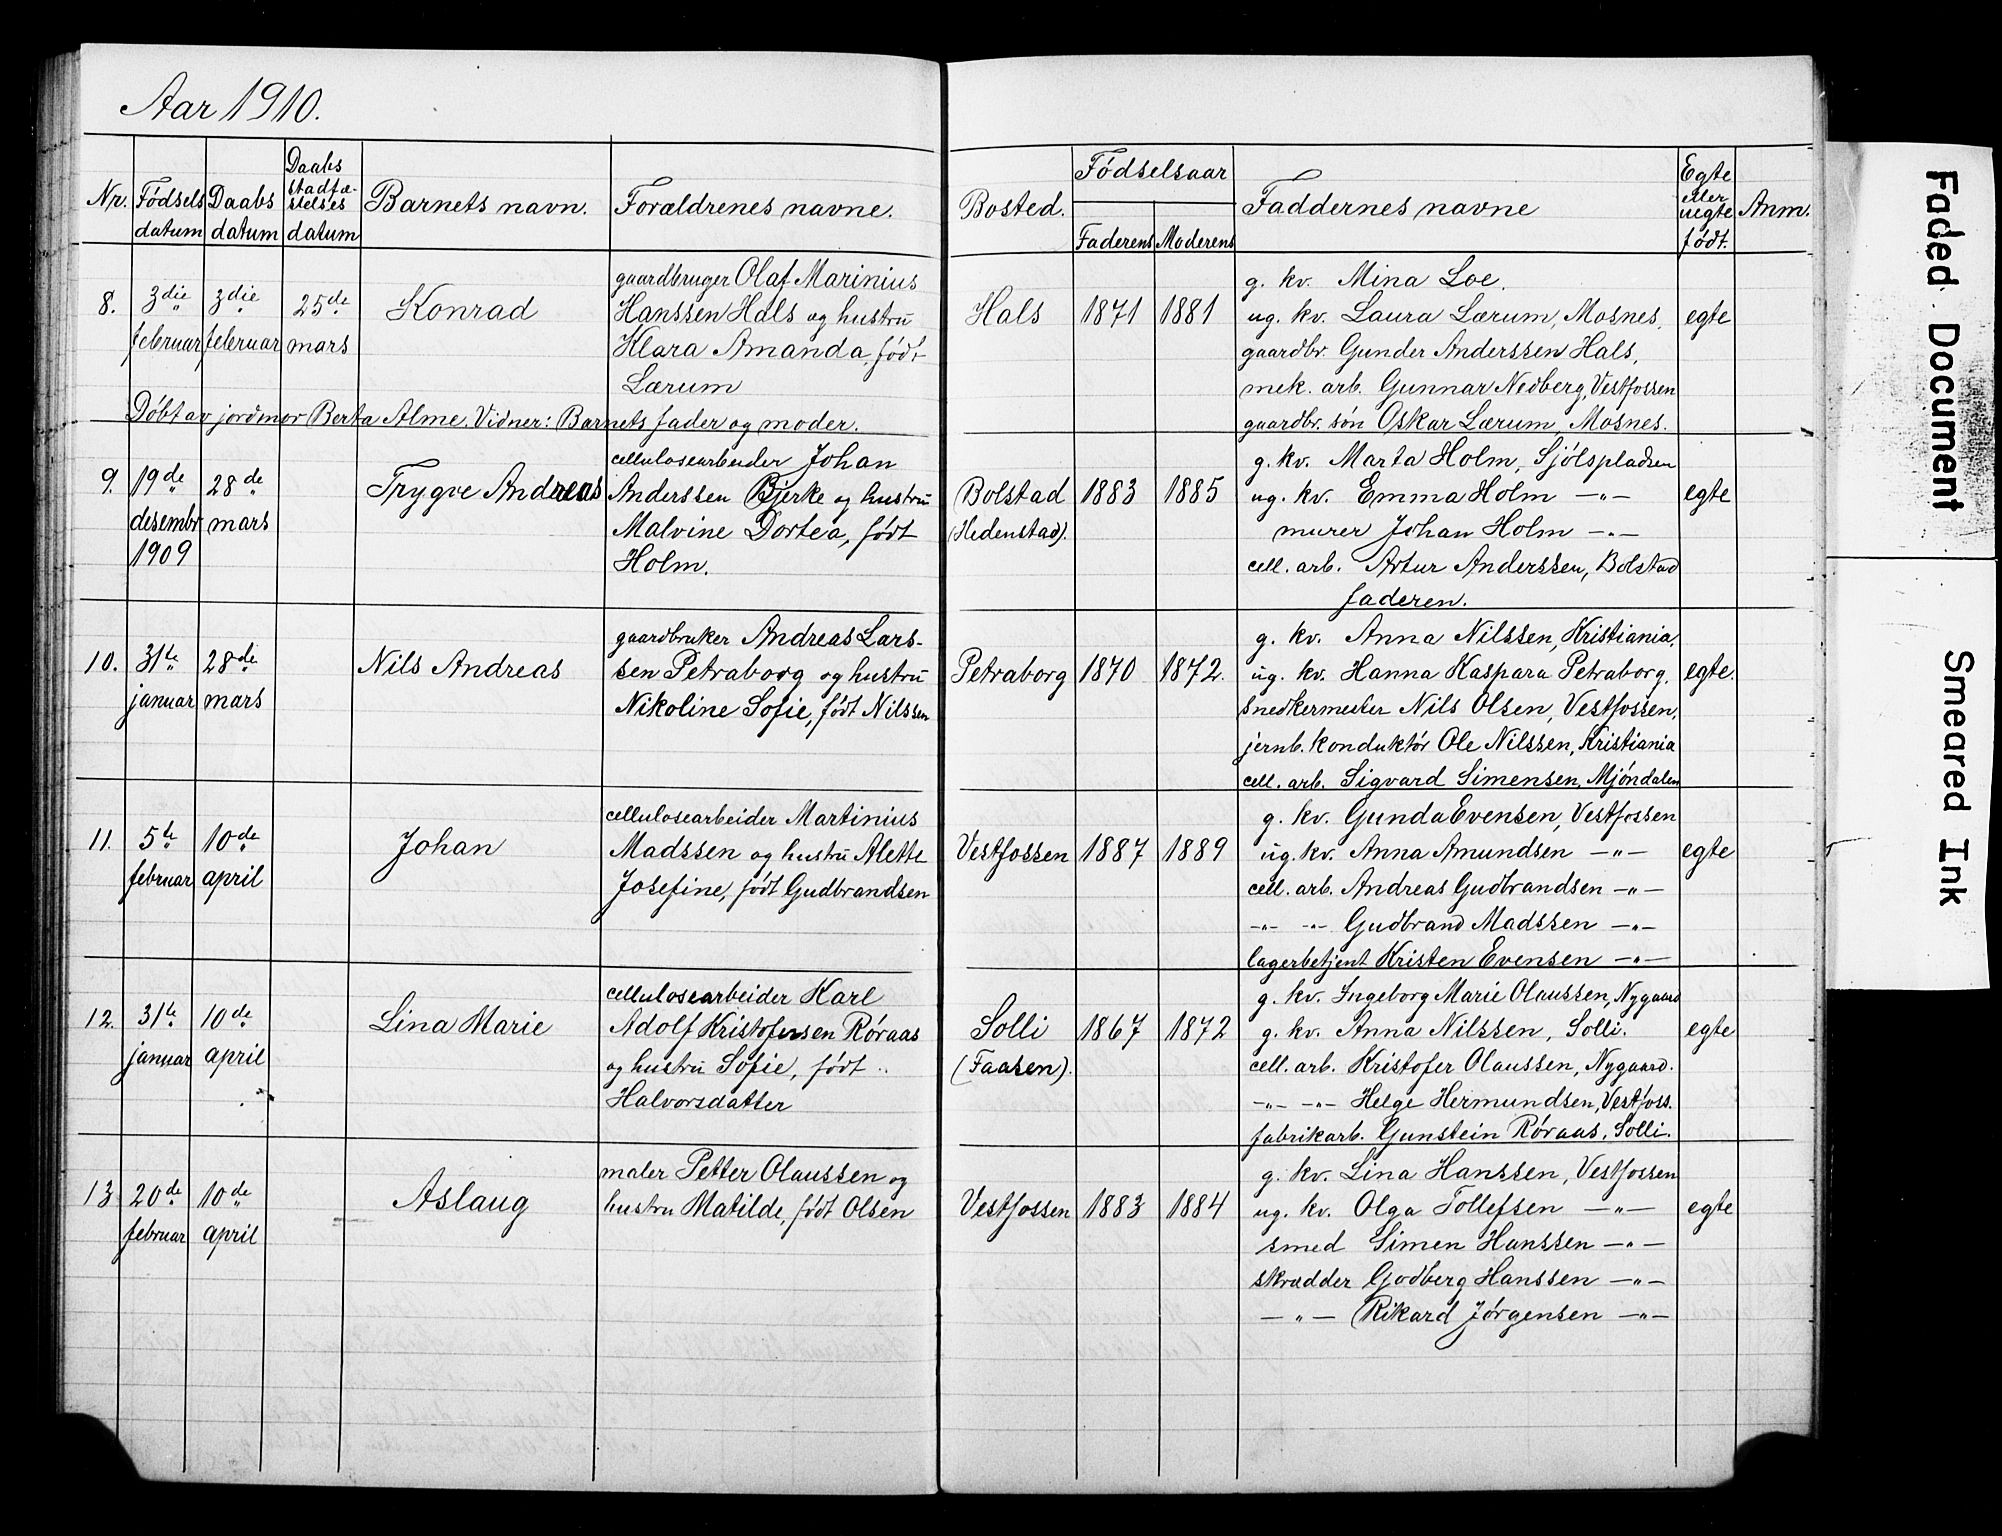 Aar 1910.
Nr. Fødsels datum Daabs datum Daabs stadfæ- stelses datum Barnets navn. Forældrenes navne. Bosted. Fødselsaar Faderens Moderens Faddernes navne Egte eller uegte født. Anm.
8. 3die februar 3die februar 25de mars Konrad
gaardbruger Olaf Marinius
Hanssen Hals og hustru
Klara Amanda, født
Lærum
Hals 1871 1881
g. kv. Mina Loe.
ug. kv. Laura Lærum, Mosnes,
gaardbr. Gunder Anderssen Hals,
mek. arb. Gunnar Nedberg, Vestfossen
gaardbr. søn Oskar Lærum, Mosnes.
egte
Døbt av jordmor Berta Alme. Vidner: Barnets fader og moder.
9. 19de desembr 1909 28de mars Trygve Andreas
cellulosearbeider Johan
Anderssen Bjerke og hustru
Malvine Dortea, født
Holm.
Bolstad (Hedenstad). 1883 1885
g. kv. Marta Holm, Sjölspladsen
ug. kv. Emma Holm —"—
murer Johan Holm —"—
cell. arb. Artur Anderssen, Bolstad
faderen.
egte
10. 31te januar 28de mars Nils Andreas
gaardbruker Andreas Lars-
sen Petraborg og hustru
Nikoline Sofie, født Nilssen
Petraborg 1870 1872.
g. kv. Anna Nilssen, Kristiania,
ug. kv. Hanna Kaspara Petraborg,
snedkermester Nils Olsen, Vestfossen,
jernb. konduktör Ole Nilssen, Kristiania
cell. arb. Sigvard Simensen, Mjöndalen
egte.
11. 5te februar 10de april Johan
cellulosearbeider Martinius
Madssen og hustru Alette
Josefine, født Gudbrandsen
Vestfossen 1887 1889
g. kv. Gunda Evensen, Vestfossen
ug. kv. Anna Amundsen —"—
cell. arb. Andreas Gudbrandsen —"—
—"— —"— Gudbrand Madssen —"—
lagerbetjent Kristen Evensen —"—
egte
12. 31te januar 10de april Lina Marie
cellulosearbeider Karl
Adolf Kristofersen Röraas
og hustru Sofie, født
Halvorsdatter
Solli (Faasen). 1867 1872
g. kv. Ingeborg Marie Olaussen, Nygaard
g. kv. Anna Nilssen, Solli.
cell. arb. Kristofer Olaussen, Nygaard.
—"— —"— Helge Hermundsen, Vestfoss.
fabrikarb. Gunstein Röraas, Solli.
egte
13 20de februar 10de april Aslaug
maler Petter Olaussen og
hustru Matilde, født Olsen
Vestfossen 1883 1884
g. kv. Lina Hanssen, Vestfossen
ug. kv. Olga Tollefsen —"—
smed Simen Hanssen —"—
skrædder Godberg Hanssen —"—
—"— Rikard Jørgensen —"—
egte
Faded Document
Smeared Ink